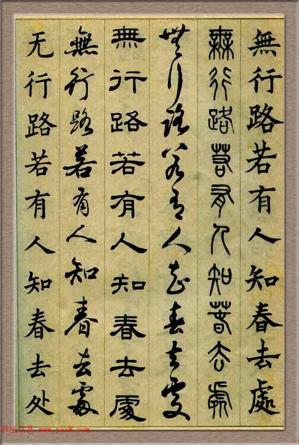 無行路若有人知春去處
無行路若有人知春去處
無行路若有人知春去處
無行路若有人知春去處
無行路若有人知春去處
无行路若有人知春去处